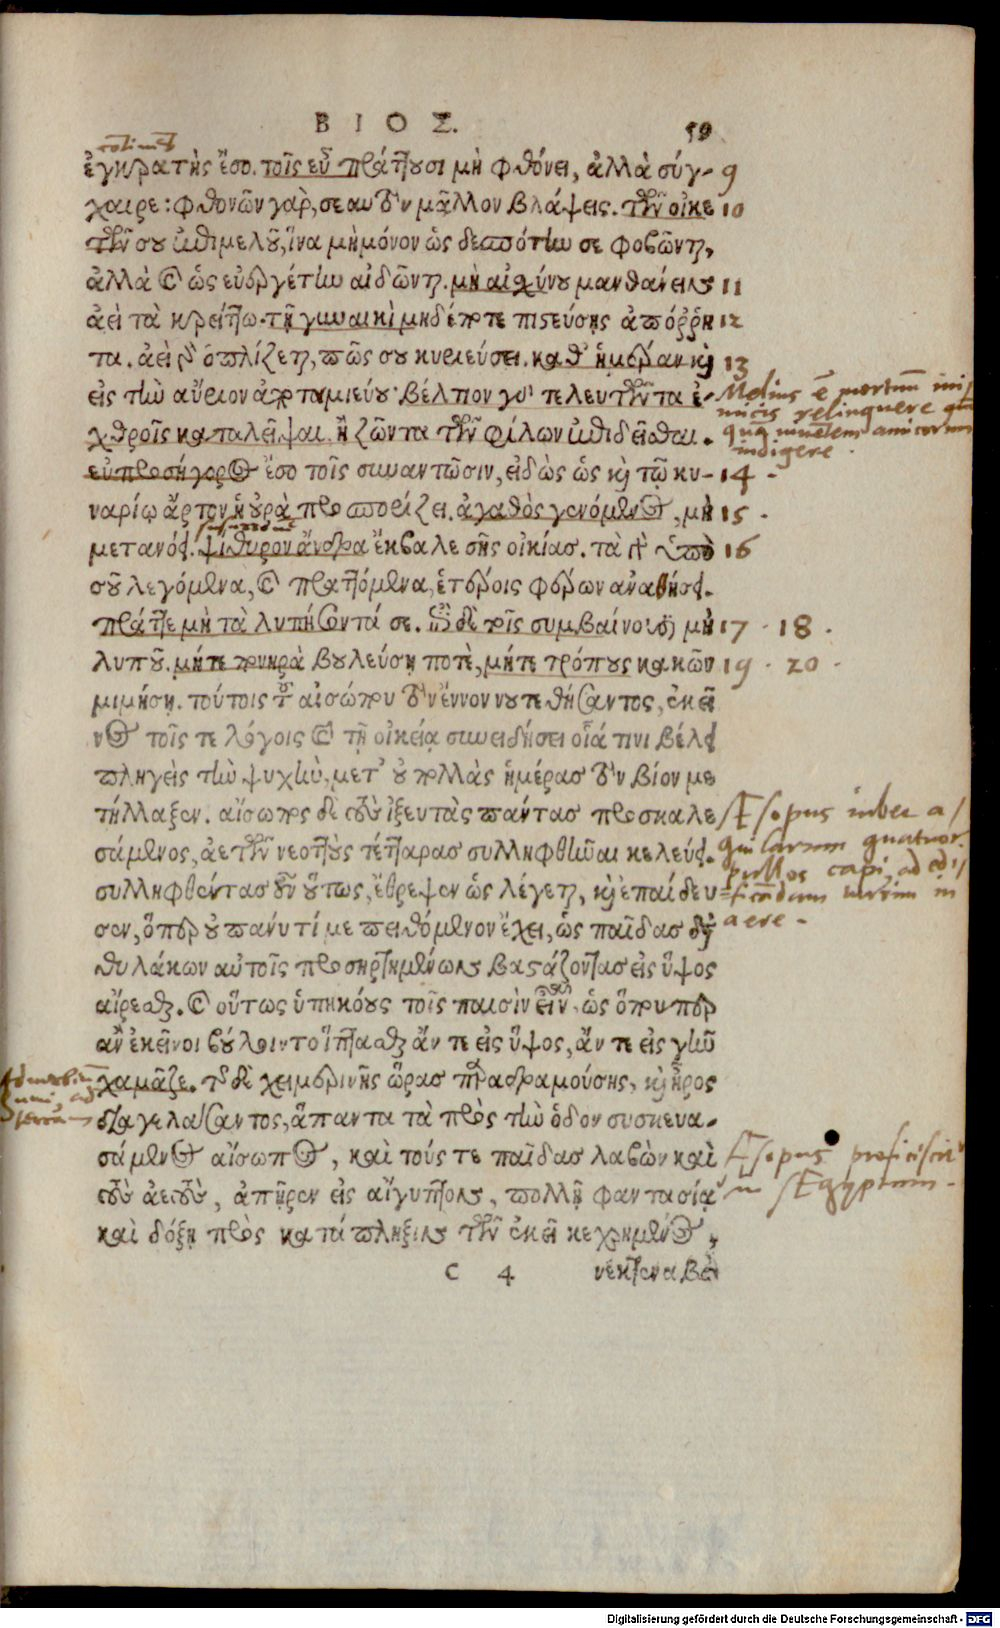 ΒΙΟΣ. 59
ἐγκρατὴς ἔσο. τοῖς εὖ πράττουσι μὴ φθόνει, ἀλλὰ σύγ- 9
χαιρε: φθονῶν γὰρ, σεαυτὸν μᾶλλον βλάψεις. τῶν οἰκε 10
τῶν σου ἐπιμελοῦ, ἵνα μὴ μόνον ὡς δεσπότην σε φοβῶνται,
ἀλλὰ καὶ ὡς εὐεργέτην αἰδῶνται. μὴ αἰσχύνου μανθάνειν 11
ἀεὶ τὰ κρείττω. τῇ γυναικὶ μηδέποτε πιστεύσῃς ἀπόῤῥη 12
τα. ἀεὶ γὰρ ὁπλίζεται, πῶς σου κυριεύσει. καθ' ἡμέραν καὶ 13
εἰς τὴν αὔριον ἀποταμιεύου· βέλτιον γὰρ τελευτῶντα ἐ-
χθροῖς καταλεῖψαι, ἢ ζῶντα τῶν φίλων ἐπιδεῖσθαι.
Melius ẽ mortuũ ini/
micis relinquere qũ
quã viuẽtem amicorum
indigere
εὐπροσήγορος ἔσο τοῖς συναντῶσιν, εἰδὼς ὡς καὶ τῷ κυ- 14 -
ναρίῳ ἄρτον ἡ οὐρὰ προσπορίζει. ἀγαθὸς γενόμενος, μὴ 15 .
μετανόει. ψίθυρον ἄνδρα ἔκβαλε σῆς οἰκίας. τὰ γὰρ ὑπὸ 16
σοῦ λεγόμενα, καὶ πραττόμενα, ἑτέροις φέρων ἀναθήσει.
πράττε μὴ τὰ λυπήσοντά σε. ἐπὶ δὲ τοῖς συμβαίνουσι μὴ 17 . 18 .
λυποῦ. μήτε πονηρὰ βουλεύσῃ ποτὲ, μήτε τρόπους κακῶν 19 . 20 .
μιμήσῃ. τούτοις τοῦ αἰσώπου τὸν ἔννον νουτεθήσαντος, ἐκεῖ
νος τοῖς τε λόγοις καὶ τῇ οἰκείᾳ συνειδήσει οἷά τινι βέλει
πληγεὶς τὴν ψυχὴν, μετ' οὐ πολλὰς ἡμέρας τὸν βίον με
τήλλαξεν. αἴσωπος δὲ τοὺς ἰξευτὰς πάντας προσκαλε
σάμενος, ἀετῶν νεοττοὺς τέτταρας συλληφθῆναι κελεύει.
συλληφθέντας οὖν οὕτως, ἔθρεψεν ὡς λέγεται, καὶ ἐπαίδευ
σεν, ὅπερ οὐ πάνυ τί με πειθόμενον ἔχει, ὡς παῖδας διὰ
Æsopus iubet a/
quilarum quatuor
pullos capi, ad edi/
ficãdam turrim in
aere -
θυλάκων αὐτοῖς προσηρτημένων βαστάζοντας εἰς ὕψος
αἴρεσθαι. καὶ οὕτως ὑπηκόους τοῖς παισὶν εἶναι, ὡς ὅπου περ
ἂν ἐκεῖνοι βούλοιντο ἵπτασθαι ἄν τε εἰς ὕψος, ἄν τε εἰς γῆν
χαμᾶζε. τῆς δὲ χειμερινῆς ὥρας παραδραμούσης, καὶ ἦρος
διαγελάσαντος, ἅπαντα τὰ πρὸς τὴν ὁδὸν συσκευα-
σάμενος αἴσωπος, καὶ τούς τε παῖδας λαβὼν καὶ
τοὺς ἀετοὺς, ἀπῆρεν εἰς αἴγυπτον, πολλῇ φαντασίᾳ
Æsopus proficiscit᷒
in Ægyptum -
καὶ δόξῃ πρὸς κατάπληξιν τῶν ἐκεῖ κεχρημένος,
C 4 νέκτενα βὼ
Digitalisierung gefördert durch die Deutsche Forschungsgemeinschaft - DFG